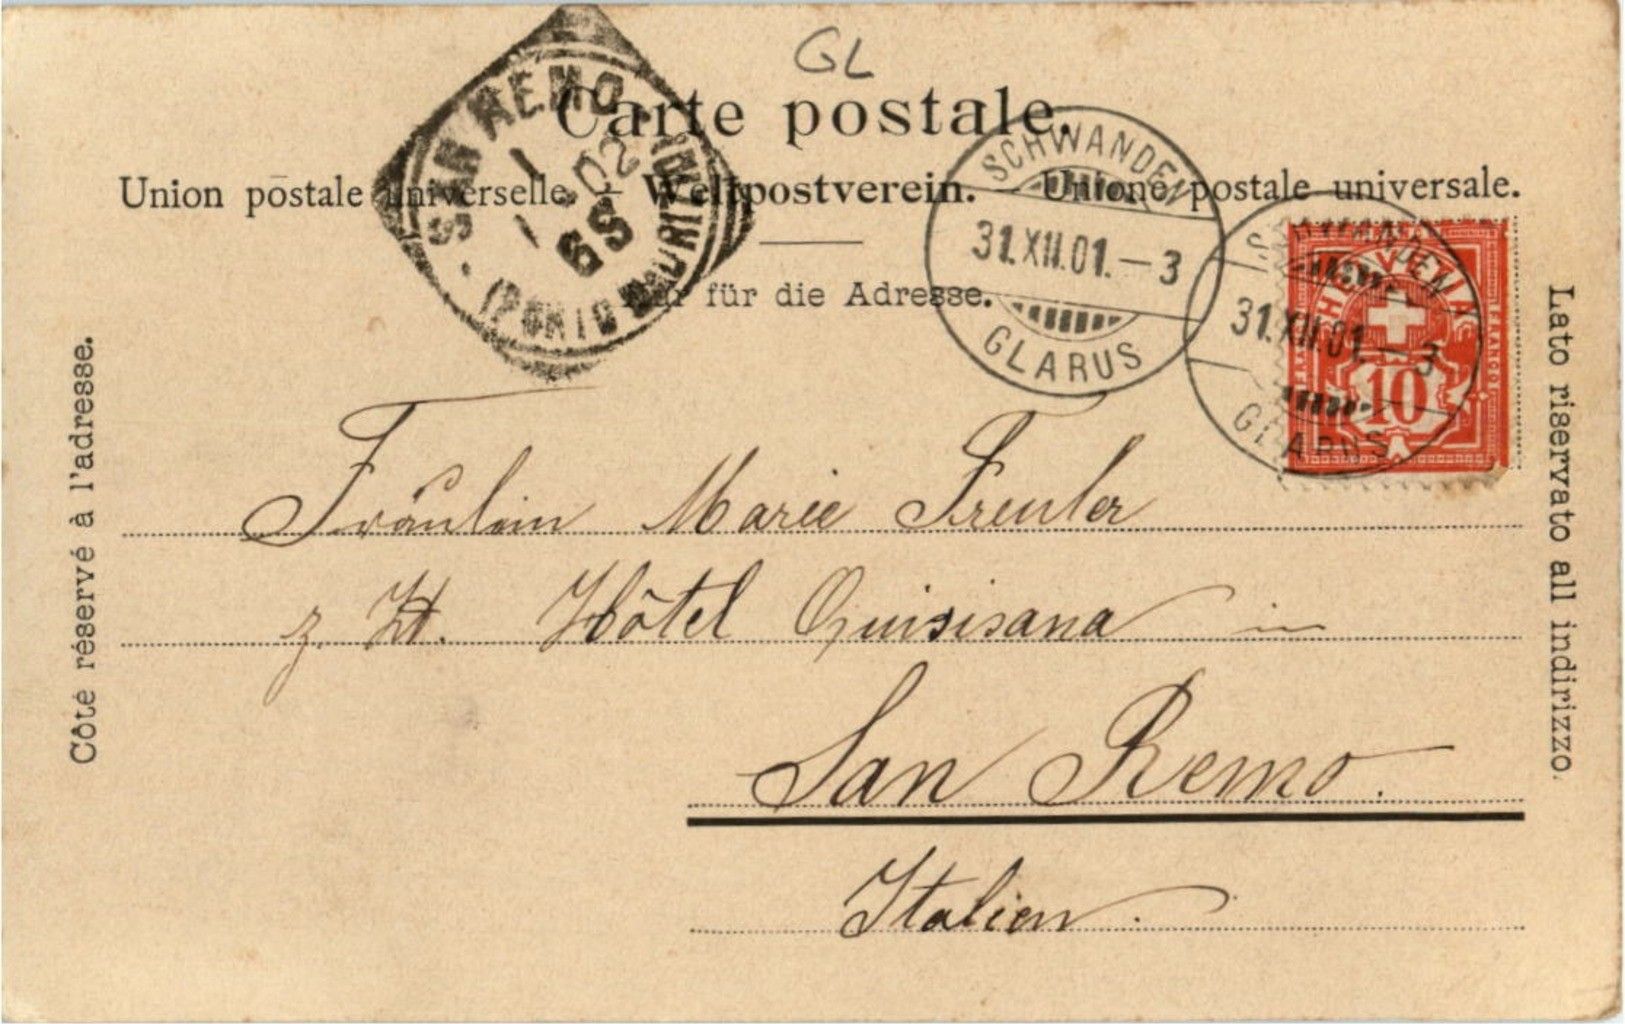 GL
Carte postale.
Union postale universelle. — Weltpostverein. — Unione postale universale.
Nur für die Adresse.
SAN REMO
(PORTO MAURIZIO)
1 - 1 02
6 S
SCHWANDEN
31.XII.01.–3
GLARUS
SCHWANDEN
31.XII.01.–3
GLARUS
HELVETIA
FRANCO
10
Côté réservé à l'adresse.
Lato riservato all indirizzo.
Fräulein Marie Freuler
z. Zt. Hôtel Quisisana in
San Remo.
Italien.